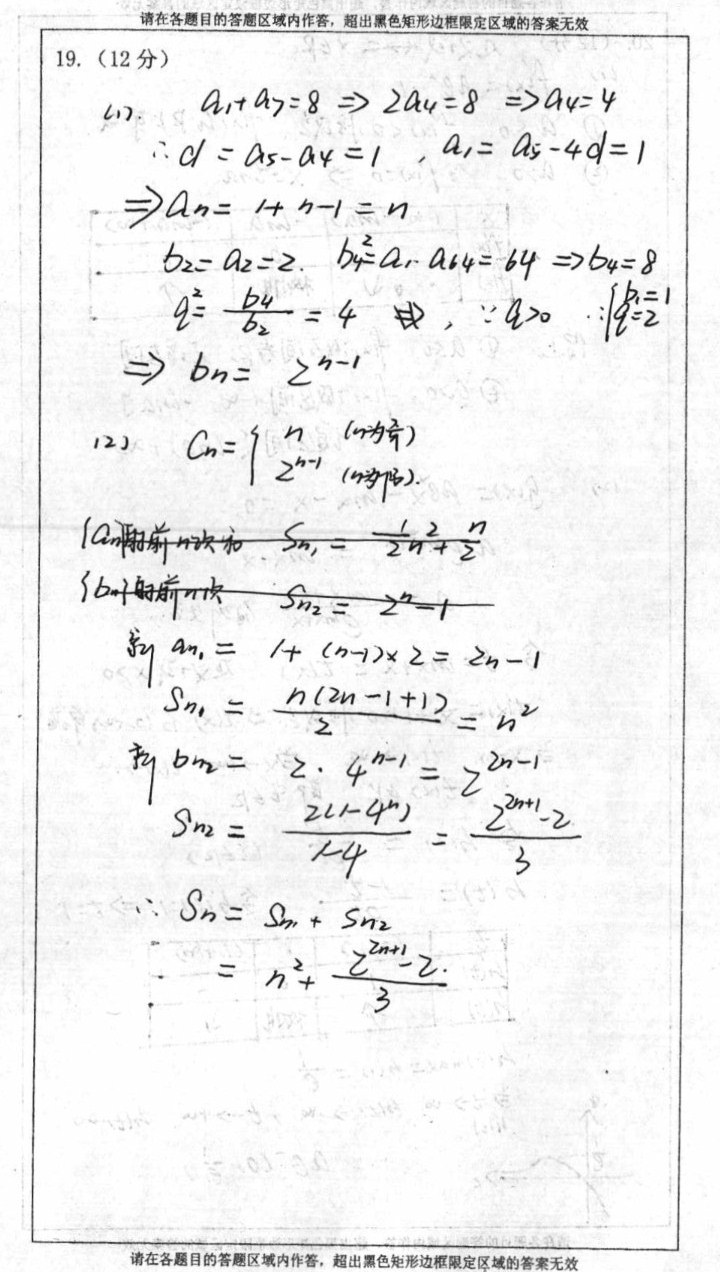 请在各题目的答题区域内作答，超出黑色矩形边框限定区域的答案无效
19.（12分）
(1). a₁+a₇=8 ⇒ 2a₄=8 ⇒ a₄=4
∴ d = a₅-a₄ = 1 , a₁ = a₅-4d = 1
⇒ aₙ = 1+n-1 = n
b₂=a₂=2. b₄²=a₁·a₆₄=64 ⇒ b₄=8
q²= b₄/b₂ = 4 , ∵ q>0 ∴ { b₁=1 q=2
⇒ bₙ = 2ⁿ⁻¹
(2) Cₙ = { n (n为奇)
2ⁿ⁻¹ (n为偶).
{aₙ}的前n项和 Sₙ₁ = 1/2 n² + n/2
{bₙ}的前n项 Sₙ₂ = 2ⁿ-1
新 aₙ₁ = 1+(n-1)×2 = 2n-1
Sₙ₁ = n(2n-1+1)/2 = n²
新 bₙ₂ = 2·4ⁿ⁻¹ = 2²ⁿ⁻¹
Sₙ₂ = 2(1-4ⁿ)/1-4 = 2²ⁿ⁺¹-2/3
∴ Sₙ = Sₙ₁ + Sₙ₂
= n² + 2²ⁿ⁺¹-2/3
请在各题目的答题区域内作答，超出黑色矩形边框限定区域的答案无效